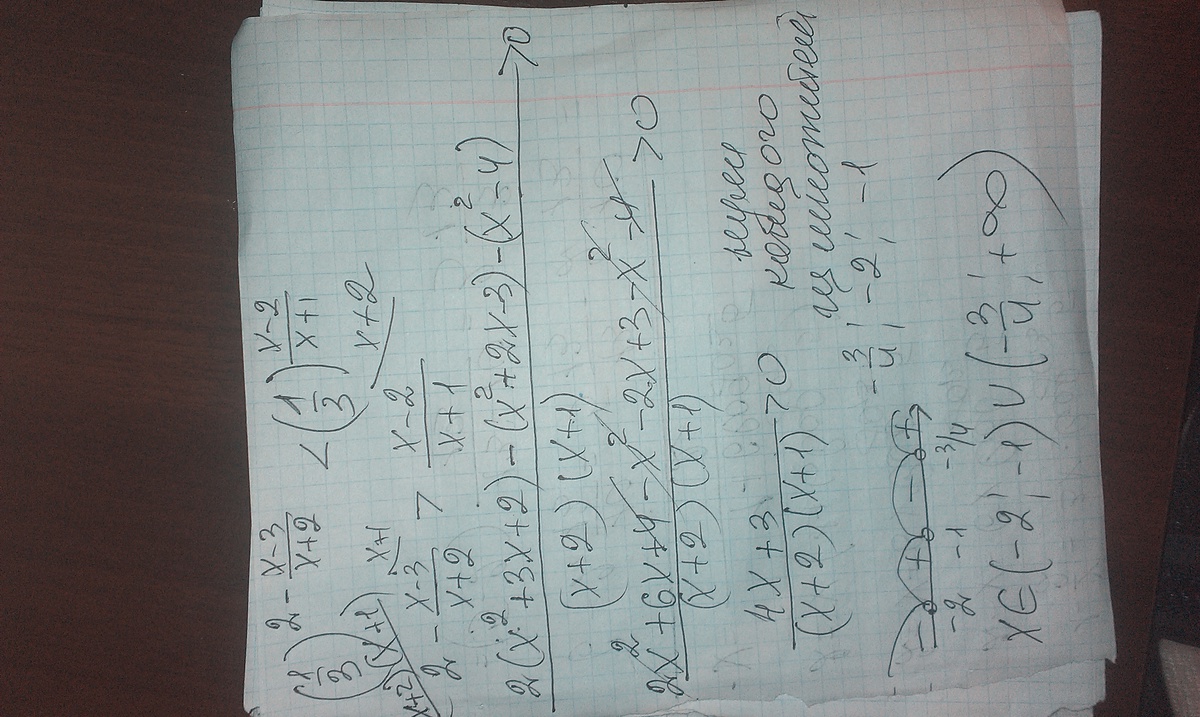 (1/3)^(2 - (x-3)/(x+2)) < (1/3)^((x-2)/(x+1))
(x+2)(x+1) x+1 x+2
2 - (x-3)/(x+2) > (x-2)/(x+1)
(2(x²+3x+2)-(x²+2x-3)-(x²-4))/((x+2)(x+1)) >0
(2x²+6x+4-x²-2x+3-x²-4)/((x+2)(x+1)) >0
(4x+3)/((x+2)(x+1)) >0
нули
каждого
из множителей
-3/4; -2; -1
- + - +
-2 -1 -3/4
x∈(-2; -1)∪(-3/4; +∞)